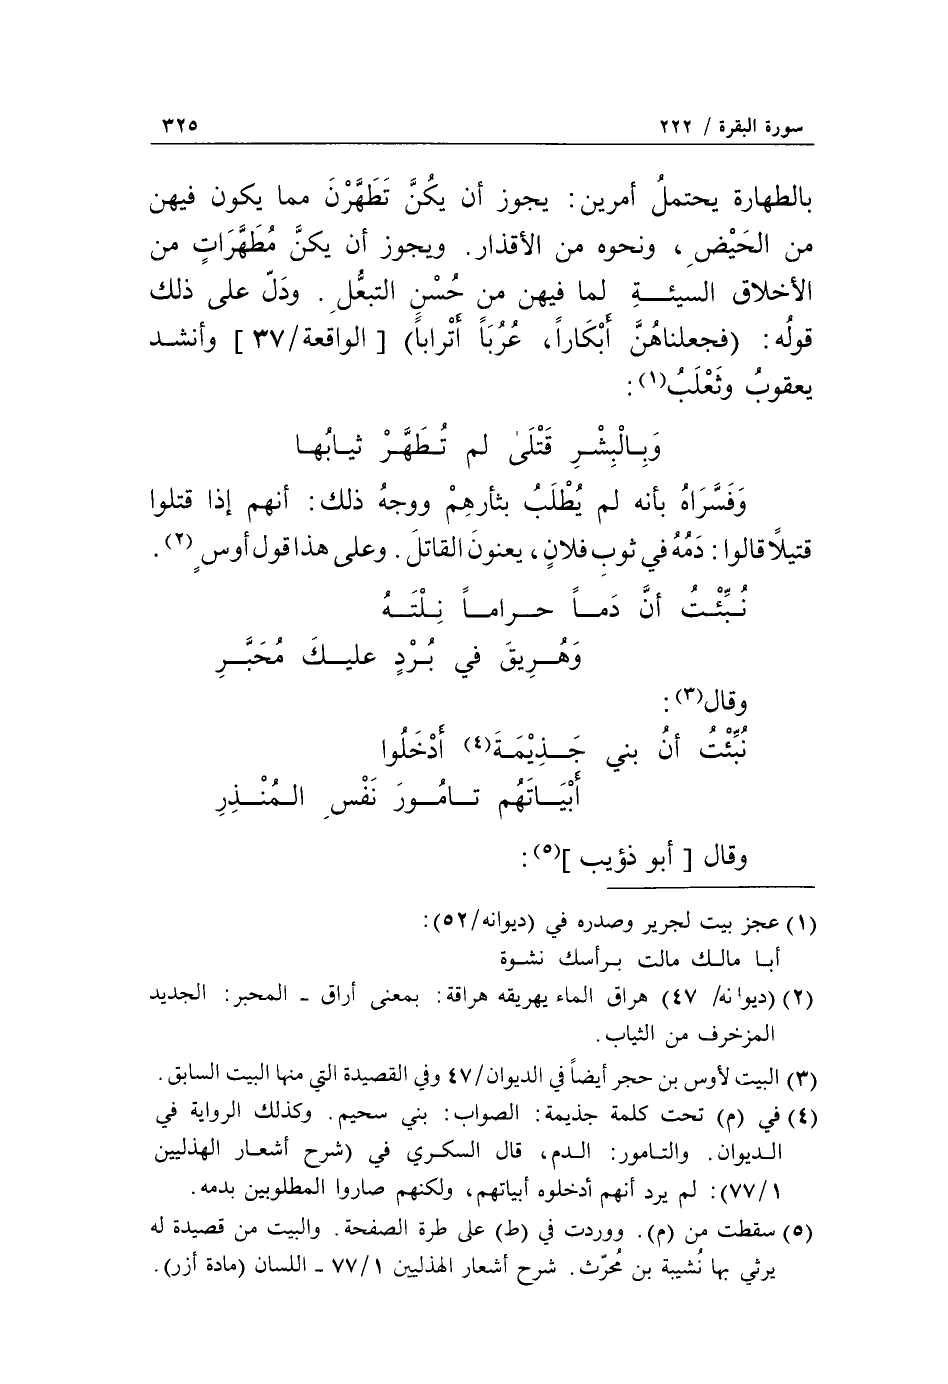 سورة البقرة / ٢٢٢ ٣٢٥
بالطهارة يحتملُ أمرين: يجوز أن يكُنَّ تَطَهَّرْنَ مما يكون فيهن
من الحَيْضِ، ونحوه من الأقذار. ويجوز أن يكنَّ مُطَهَّرَاتٍ من
الأخلاق السيئــةِ لما فيهن من حُسْنِ التبعُّلِ. ودَلّ على ذلك
قولُه: (فجعلناهُنَّ أَبْكاراً، عُرُبَاً أَتْراباً) [ الواقعة/٣٧ ] وأنشد
يعقوبُ وثَعْلَبُ(١):
وَبِالْبِشْرِ قَتْلَىٰ لم تُطَهَّرْ ثيابُها
وَفَسَّرَاهُ بأنه لم يُطْلَبُ بثأرهِمْ ووجهُ ذلك: أنهم إذا قتلوا
قتيلاً قالوا: دَمُهُ في ثوبِ فلانٍ، يعنونَ القاتلَ. وعلى هذا قول أوسٍ(٢).
نُبِّئْتُ أنَّ دَماً حراماً نِلْتَهُ
وَهُرِيقَ في بُرْدٍ عليكَ مُحَبَّرِ
وقال(٣):
نُبِّئْتُ أنُ بني جَذِيْمَةَ(٤) أَدْخَلُوا
أَبْيَاتَهُم تامُورَ نَفْسِ المُنْذِرِ
وقال [ أبو ذؤيب ](٥):
(١) عجز بيت لجرير وصدره في (ديوانه/٥٢):
أبا مالك مالت برأسك نشوة
(٢) (ديوانه/ ٤٧) هراق الماء يهريقه هراقة: بمعنى أراق ـ المحبر: الجديد
المزخرف من الثياب.
(٣) البيت لأوس بن حجر أيضاً في الديوان/٤٧ وفي القصيدة التي منها البيت السابق.
(٤) في (م) تحت كلمة جذيمة: الصواب: بني سحيم. وكذلك الرواية في
الديوان. والتامور: الدم، قال السكري في (شرح أشعار الهذليين
٧٧/١): لم يرد أنهم أدخلوه أبياتهم، ولكنهم صاروا المطلوبين بدمه.
(٥) سقطت من (م). ووردت في (ط) على طرة الصفحة. والبيت من قصيدة له
يرثي بها نُشيبة بن مُحرّث. شرح أشعار الهذليين ٧٧/١ ـ اللسان (مادة أزر).